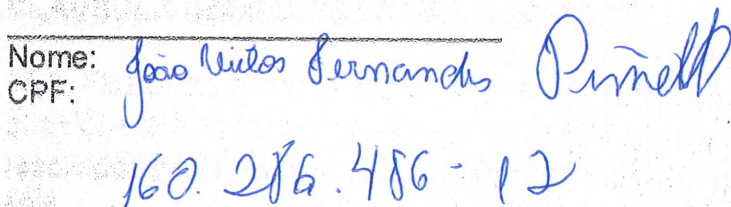 Nome: João Victor Fernandes Pimell
CPF:
160.286.486-12